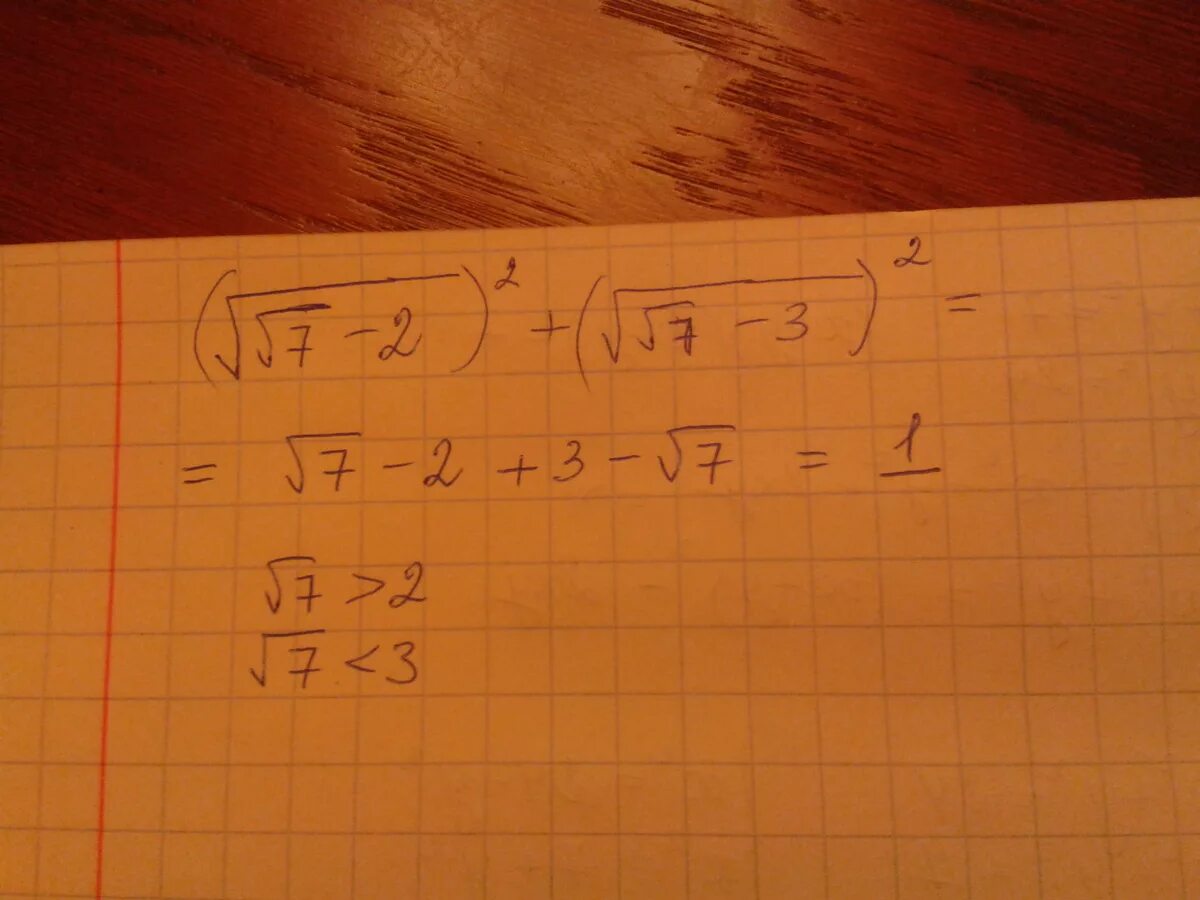 (√(√7 - 2))² + (√(√7 - 3))² =
= √7 - 2 + 3 - √7 = 1
√7 > 2
√7 < 3